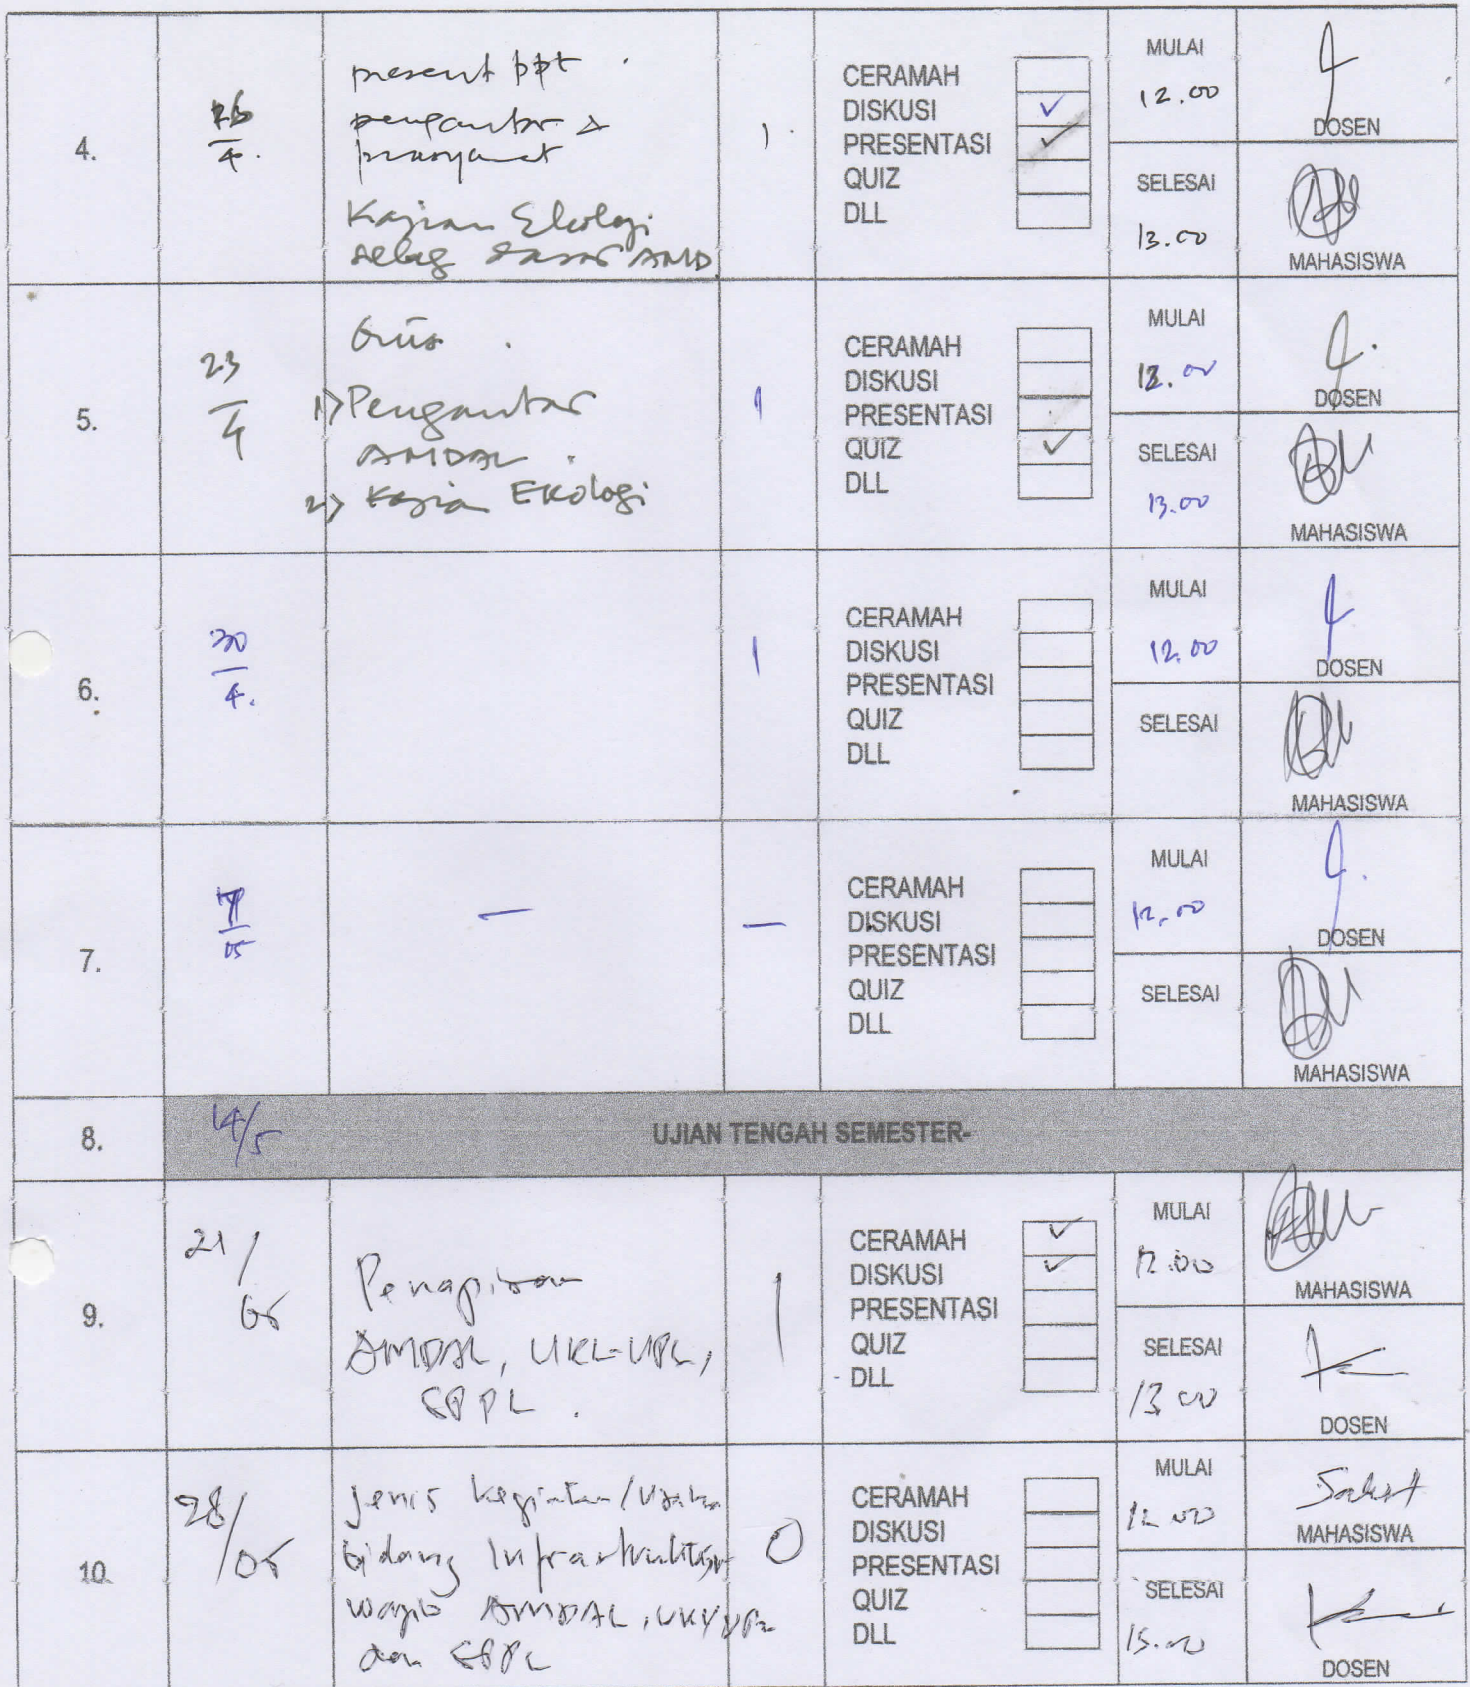 4.
present ppt.
pengantar &
prasyarat
Kajian Ekologi
sebag dasar AMD
1
CERAMAH
DISKUSI ✓
PRESENTASI ✓
QUIZ
DLL
MULAI
12.00
DOSEN
SELESAI
13.00
MAHASISWA
5.
23
4
1) Pengantar
AMDAL.
2) Kajian Ekologi
1
CERAMAH
DISKUSI
PRESENTASI
QUIZ ✓
DLL
MULAI
12.00
DOSEN
SELESAI
13.00
MAHASISWA
6.
30
4.
1
CERAMAH
DISKUSI
PRESENTASI
QUIZ
DLL
MULAI
12.00
DOSEN
SELESAI
MAHASISWA
7.
7
05
—
—
CERAMAH
DISKUSI
PRESENTASI
QUIZ
DLL
MULAI
12.00
DOSEN
SELESAI
MAHASISWA
8.
14/5
UJIAN TENGAH SEMESTER-
9.
21/
05
Penapisan
AMDAL, UKL-UPL,
SPPL.
1
CERAMAH ✓
DISKUSI ✓
PRESENTASI
QUIZ
DLL
MULAI
12.00
MAHASISWA
SELESAI
13.00
DOSEN
10.
28/05
Jenis kegiatan/Usaha
bidang Infrastruktur
wajib AMDAL, UKL/UPL
dan SPPL
0
CERAMAH
DISKUSI
PRESENTASI
QUIZ
DLL
MULAI
12.00
Sakit
MAHASISWA
SELESAI
15.00
DOSEN